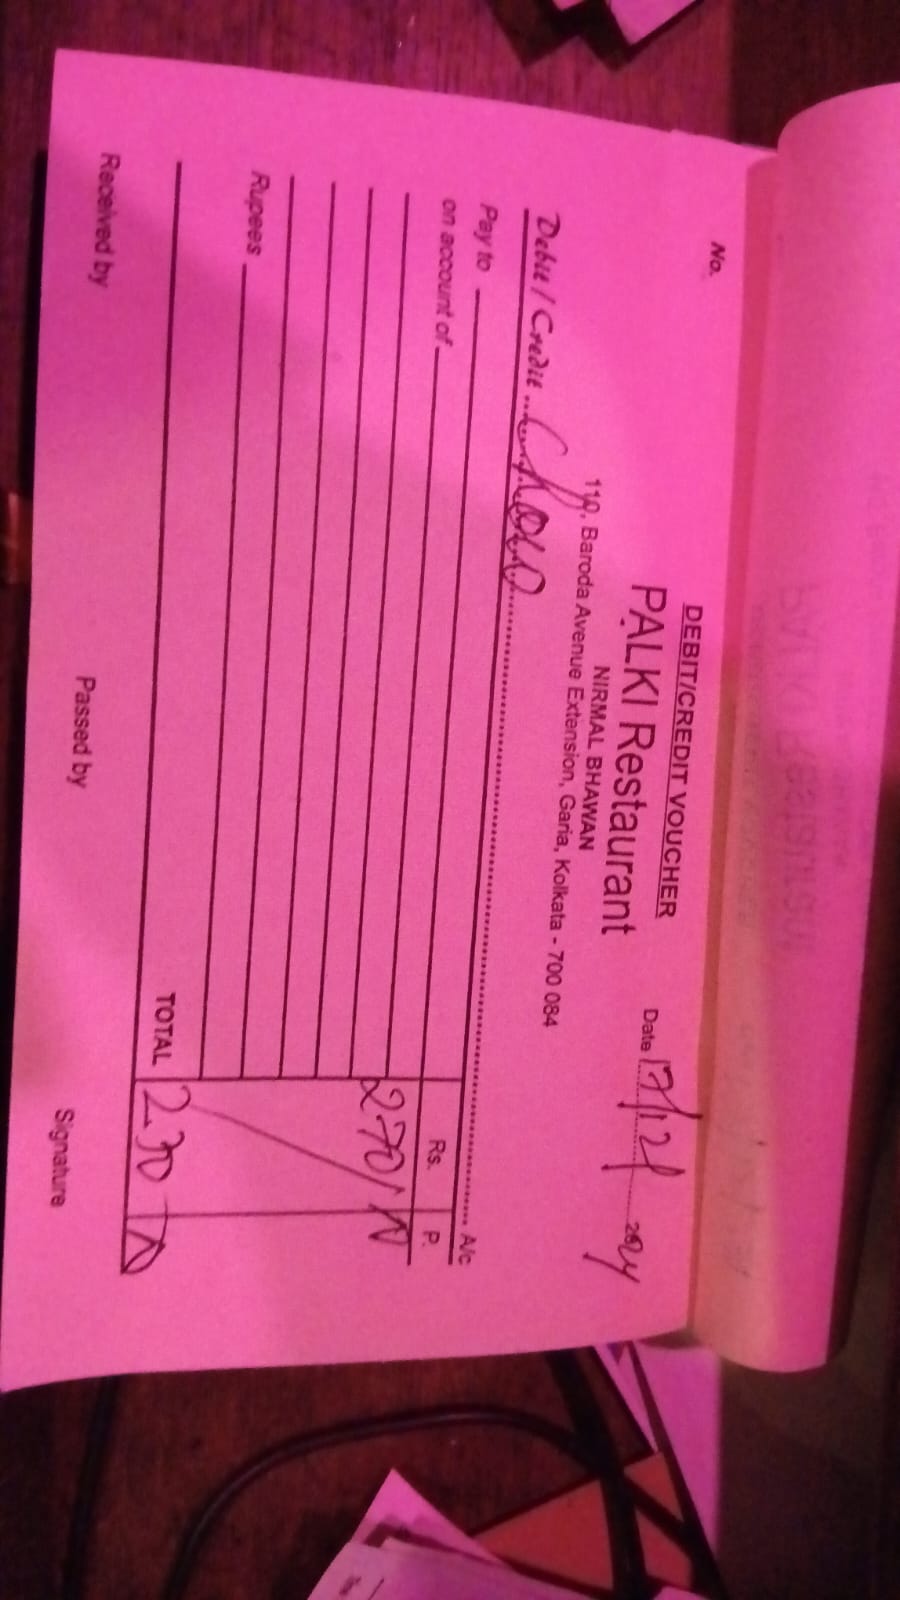 No.
DEBIT/CREDIT VOUCHER
PALKI Restaurant
NIRMAL BHAWAN
110, Baroda Avenue Extension, Garia, Kolkata - 700 084
Date 17/12/ 2024
Debit / Credit Chow A/c
Pay to
Rs. P.
on account of
Rupees
TOTAL
Received by Passed by Signature